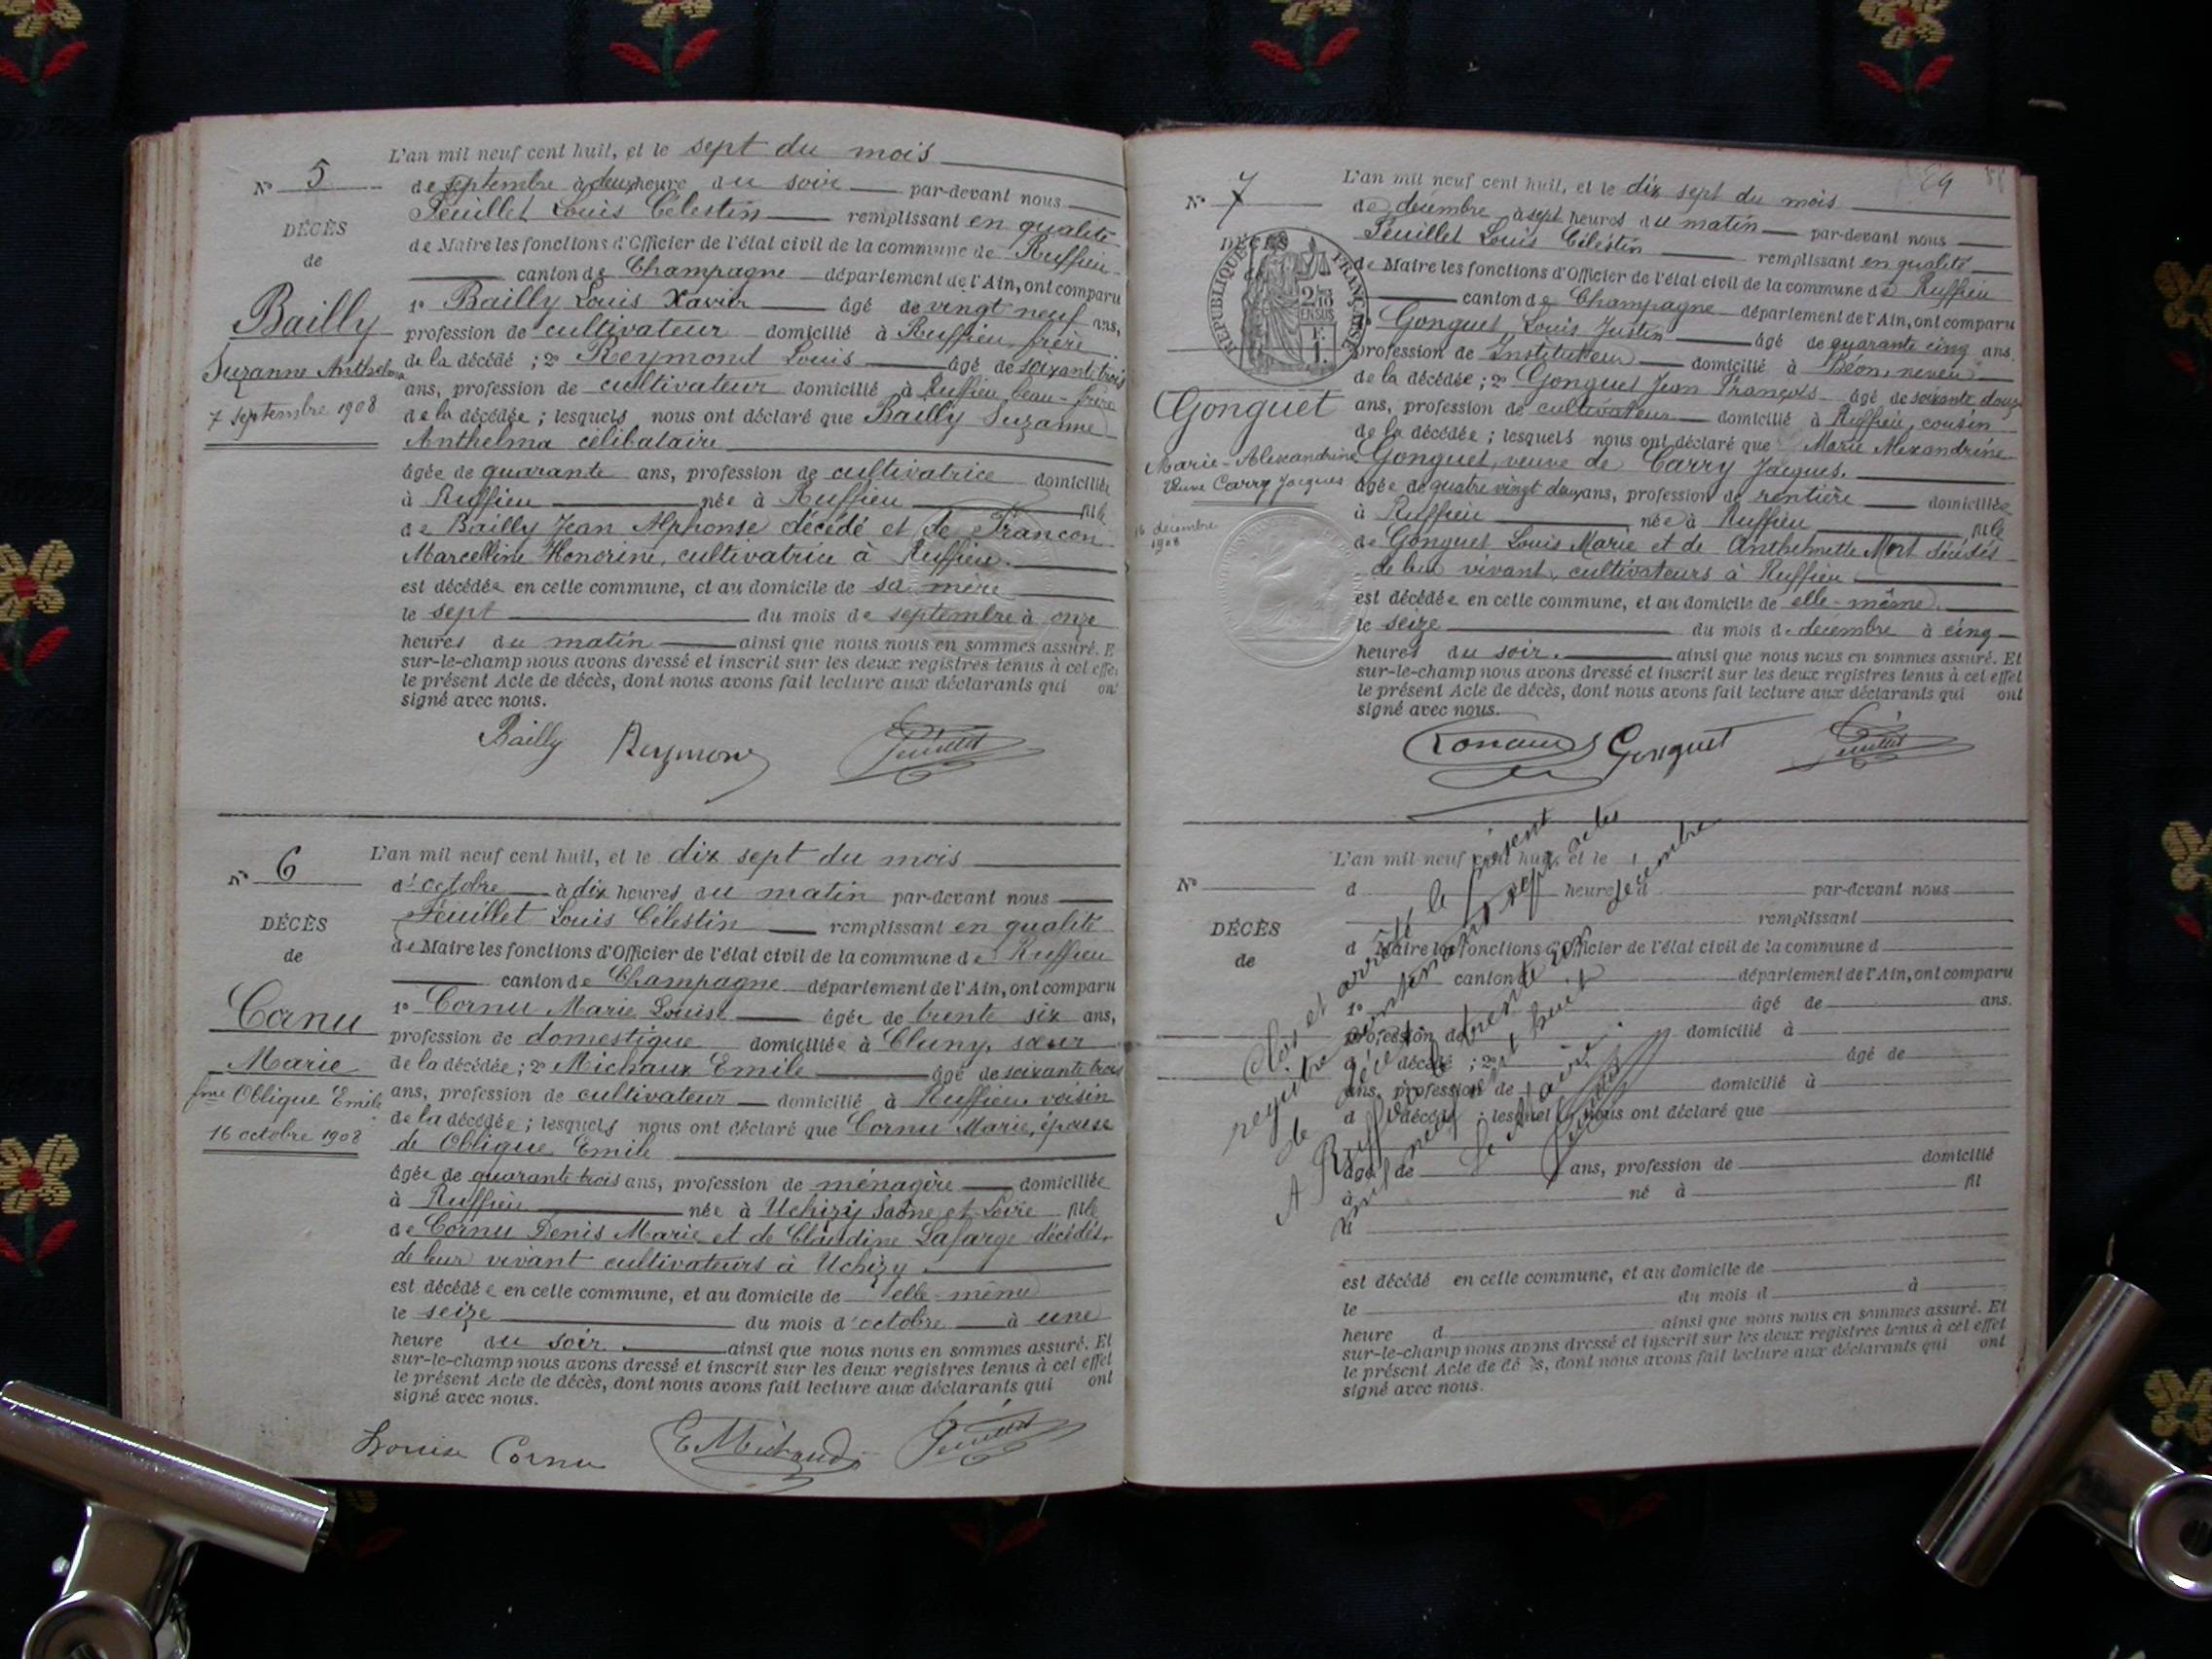 L'an mil neuf cent huit, et le sept du mois
N° 5
de septembre à deux heure du soir par-devant nous
Feuillet Louis Célestin remplissant en qualité
DÉCÈS
de Maire les fonctions d'Officier de l'état civil de la commune de Ruffieu
de
canton de Champagne département de l'Ain, ont comparu
Bailly
1° Bailly Louis Xavier âgé de vingt neuf ans,
profession de cultivateur domicilié à Ruffieu, frère
Suzanne Anthelma
de la décédé ; 2° Reymond Louis âgé de soixante trois
ans, profession de cultivateur domicilié à Ruffieu, beau-frère
7 septembre 1908
de la décédée ; lesquels nous ont déclaré que Bailly Suzanne
Anthelma célibataire
âgée de quarante ans, profession de cultivatrice domiciliée
à Ruffieu née à Ruffieu fille
de Bailly Jean Alphonse décédé et de Francon
Marcelline Honorine, cultivatrice à Ruffieu.
est décédée en cette commune, et au domicile de sa mère
le sept du mois de septembre à onze
heures du matin ainsi que nous nous en sommes assuré. E
sur-le-champ nous avons dressé et inscrit sur les deux registres tenus à cet effet
le présent Acte de décès, dont nous avons fait lecture aux déclarants qui ont
signé avec nous.
Bailly Reymond Feuillet
L'an mil neuf cent huit, et le dix sept du mois
N° 6
d'octobre à dix heures du matin par-devant nous
Feuillet Louis Célestin remplissant en qualité
DÉCÈS
de Maire les fonctions d'Officier de l'état civil de la commune de Ruffieu
de
canton de Champagne département de l'Ain, ont comparu
Cornu
1° Cornu Marie Louise âgée de trente six ans,
profession de domestique domiciliée à Cluny, sœur
Marie
de la décédée ; 2° Michaux Emile âgé de soixante trois
fme Oblique Emile
ans, profession de cultivateur domicilié à Ruffieu voisin
de la décédée ; lesquels nous ont déclaré que Cornu Marie, épouse
16 octobre 1908
de Oblique Emile
âgée de quarante trois ans, profession de ménagère domiciliée
à Ruffieu née à Uchizy Saône et Loire fille
de Cornu Denis Marie et de Claudine Lafarge décédés,
de leur vivant cultivateurs à Uchizy.
est décédée en cette commune, et au domicile de elle-même
le seize du mois d'octobre à une
heure du soir. ainsi que nous nous en sommes assuré. Et
sur-le-champ nous avons dressé et inscrit sur les deux registres tenus à cet effet
le présent Acte de décès, dont nous avons fait lecture aux déclarants qui ont
signé avec nous.
Louise Cornu E Michaud Feuillet
29
L'an mil neuf cent huit, et le dix sept du mois
N° 7
de décembre à sept heures du matin par-devant nous
Feuillet Louis Célestin remplissant en qualité
DÉCÈS
RÉPUBLIQUE FRANÇAISE
2/10 EN SUS
de Maire les fonctions d'Officier de l'état civil de la commune de Ruffieu
canton de Champagne département de l'Ain, ont comparu
Gonguet Louis Justin âgé de quarante cinq ans.
profession de Instituteur domicilié à Béon, neveu
de la décédée ; 2° Gonguet Jean François âgé de soixante douze
Gonguet
ans, profession de cultivateur domicilié à Ruffieu, cousin
de la décédée ; lesquels nous ont déclaré que Marie Alexandrine
Marie-Alexandrine
Gonguet, veuve de Carry Jacques.
Veuve Carry Jacques
âgée de quatre vingt deux ans, profession de rentière domiciliée
à Ruffieu née à Ruffieu fille
16 décembre
1908
de Gonguet Louis Marie et de Anthelmette Mort décédés
de leur vivant, cultivateurs à Ruffieu
est décédée en cette commune, et au domicile de elle-même.
le seize du mois de décembre à cinq
heures du soir. ainsi que nous nous en sommes assuré. Et
sur-le-champ nous avons dressé et inscrit sur les deux registres tenus à cet effet
le présent Acte de décès, dont nous avons fait lecture aux déclarants qui ont
signé avec nous.
Gonguet Feuillet
L'an mil neuf cent huit, et le
N°
d heure d par-devant nous
remplissant
DÉCÈS
d Maire les fonctions d'Officier de l'état civil de la commune d
de
canton d département de l'Ain, ont comparu
1° âgé de ans.
profession de domicilié à
d décédé ; 2° âgé de
ans, profession de domicilié à
d décédé ; lesquel nous ont déclaré que
âgé de ans, profession de domicilié
à né à fil
d
est décédé en cette commune, et au domicile de
le du mois d à
heure d ainsi que nous nous en sommes assuré. Et
sur-le-champ nous avons dressé et inscrit sur les deux registres tenus à cet effet
le présent Acte de décès, dont nous avons fait lecture aux déclarants qui ont
signé avec nous.
Clos et arrêté le présent
registre contenant sept actes
de décès
A Ruffieu le trente un décembre
mil neuf cent huit
Le Maire
Feuillet